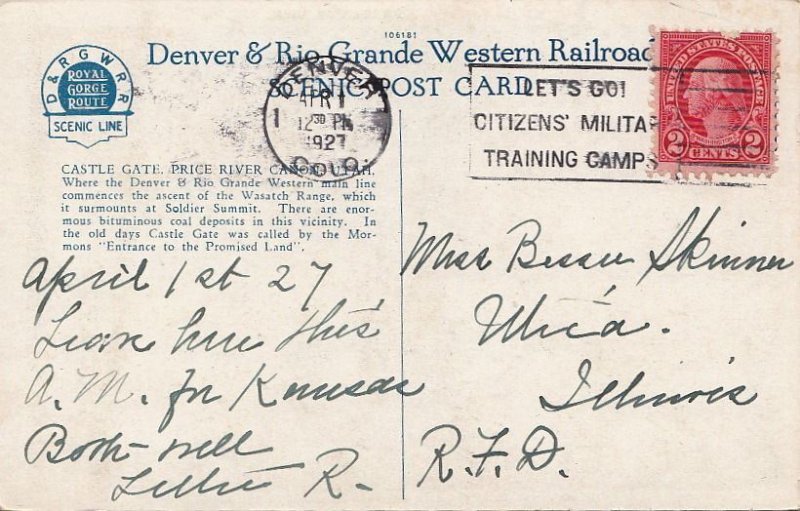 106181
D & R G W R R
ROYAL
GORGE
ROUTE
SCENIC LINE
Denver & Rio Grande Western Railroad
SCENIC POST CARD
DENVER
APR 1
12 30 PM
1927
COLO.
LET'S GO!
CITIZENS' MILITA
TRAINING CAMPS
UNITED STATES POSTAGE
2 CENTS 2
CASTLE GATE, PRICE RIVER CAÑON, UTAH.
Where the Denver & Rio Grande Western main line
commences the ascent of the Wasatch Range, which
it surmounts at Soldier Summit. There are enor-
mous bituminous coal deposits in this vicinity. In
the old days Castle Gate was called by the Mor-
mons "Entrance to the Promised Land".
April 1st 27
Leave here this
A.M. for Kansas
Both well
Lillie R.
Miss Bessie Skinner
Utica.
Illinois
R.F.D.